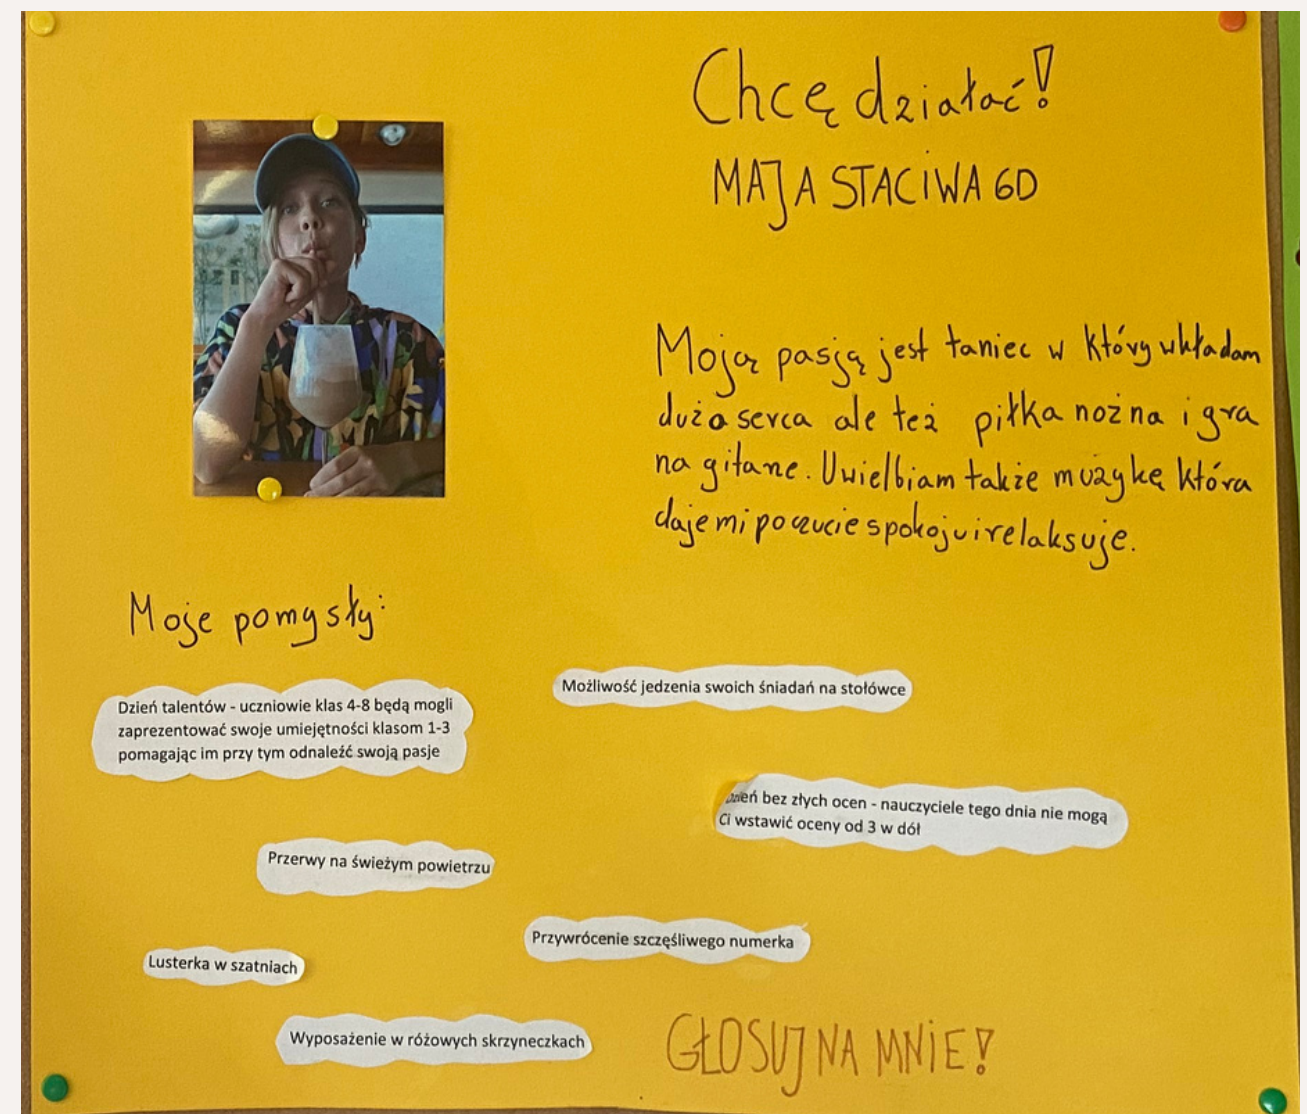 Chcę działać!
MAJA STACIWA 6D
Moją pasją jest taniec w który wkładam
dużo serca ale też piłka nożna i gra
na gitane. Uwielbiam także muzykę która
daje mi poczucie spokoju i relaksuje.
Moje pomysły:
Dzień talentów - uczniowie klas 4-8 będą mogli
zaprezentować swoje umiejętności klasom 1-3
pomagając im przy tym odnaleźć swoją pasje
Możliwość jedzenia swoich śniadań na stołówce
Dzień bez złych ocen - nauczyciele tego dnia nie mogą
Ci wstawić oceny od 3 w dół
Przerwy na świeżym powietrzu
Przywrócenie szczęśliwego numerka
Lusterka w szatniach
Wyposażenie w różowych skrzyneczkach
GŁOSUJ NA MNIE!